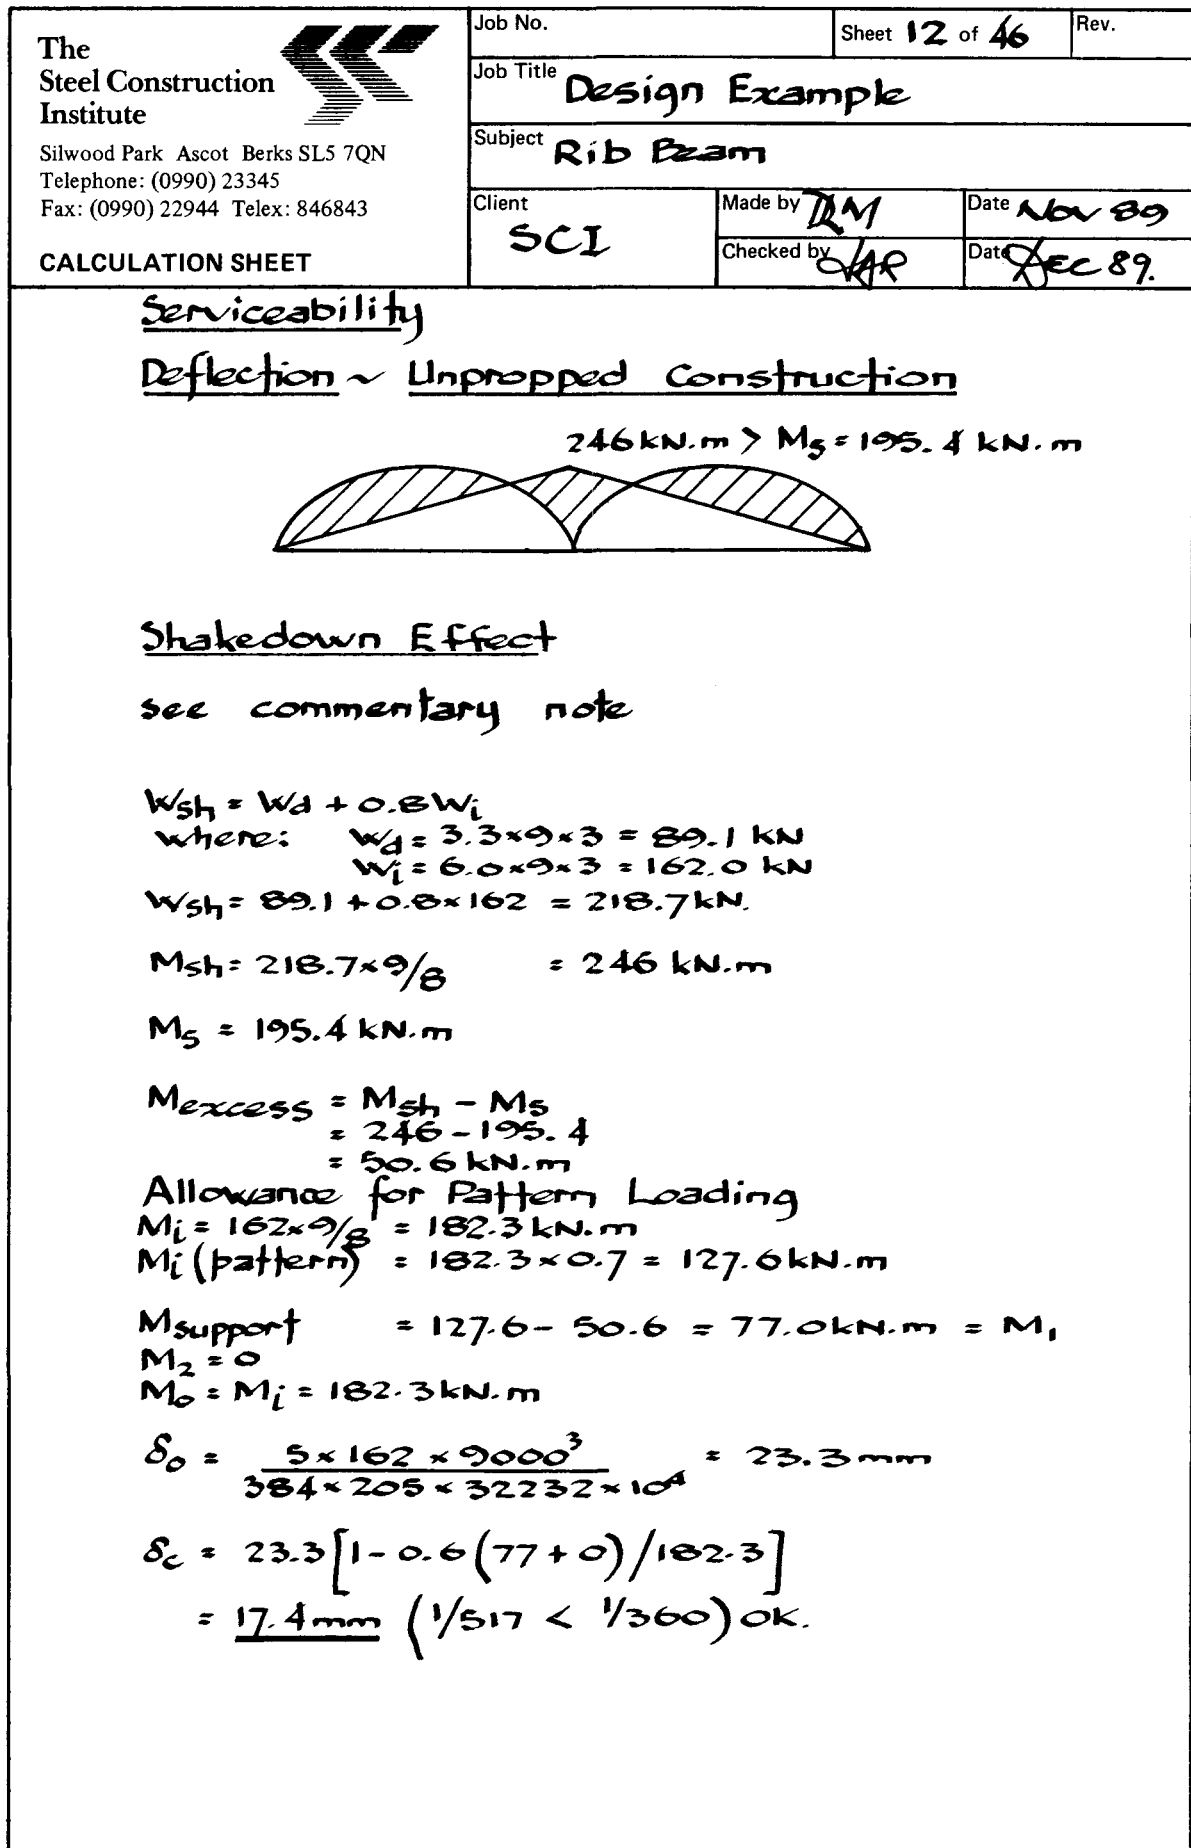 The
Steel Construction
Institute
Silwood Park Ascot Berks SL5 7QN
Telephone: (0990) 23345
Fax: (0990) 22944 Telex: 846843
CALCULATION SHEET
Job No.
Sheet 12 of 46
Rev.
Job Title Design Example
Subject Rib Beam
Client SCI
Made by RM
Date Nov 89
Checked by
Date Dec 89.
Serviceability
Deflection ~ Unpropped Construction
246 kN.m > M5 = 195.4 kN.m
Shakedown Effect
see commentary note
Wsh = Wd + 0.8Wi
where: Wd = 3.3×9×3 = 89.1 kN
Wi = 6.0×9×3 = 162.0 kN
Wsh = 89.1 + 0.8×162 = 218.7kN.
Msh = 218.7×9/8 = 246 kN.m
M5 = 195.4 kN.m
Mexcess = Msh - M5
= 246 - 195.4
= 50.6 kN.m
Allowance for Pattern Loading
Mi = 162×9/8 = 182.3 kN.m
Mi (pattern) = 182.3×0.7 = 127.6kN.m
Msupport = 127.6 - 50.6 = 77.0kN.m = M1
M2 = 0
M0 = Mi = 182.3kN.m
δ0 = 5×162×9000³ / 384×205×32232×10⁴ = 23.3mm
δc = 23.3[1-0.6(77+0)/182.3]
= 17.4mm (1/517 < 1/360) OK.